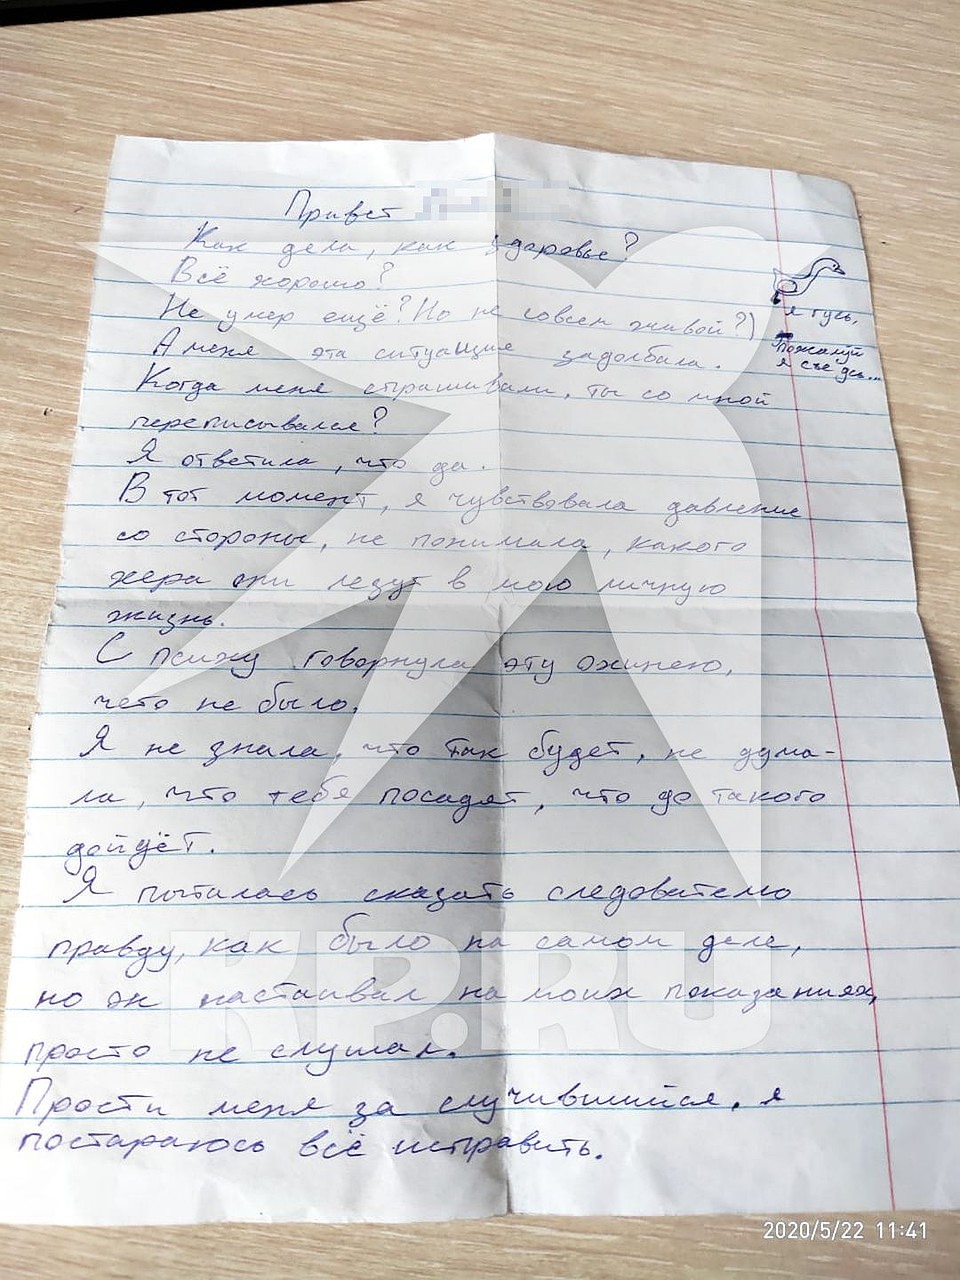 Привет
Как дела, как здоровье?
Всё хорошо?
Не умер ещё? Но не совсем живой?)
А меня эта ситуация задолбала.
Когда меня спрашивали, ты со мной
переписывался?
Я ответила, что да.
В тот момент, я чувствовала давление
со стороны, не понимала, какого
хера они лезут в мою личную
жизнь.
С психу говорнула эту ахинею,
чего не было.
Я не знала, что так будет, не дума-
ла, что тебя посадят, что до такого
дойдёт.
Я пыталась сказать следователю
правду, как было на самом деле,
но он настаивал на моих показаниях,
просто не слушал.
Прости меня за случившийся, я
постараюсь всё исправить.
я гусь,
пожалуй
я съе дь...
KP.RU
2020/5/22 11:41